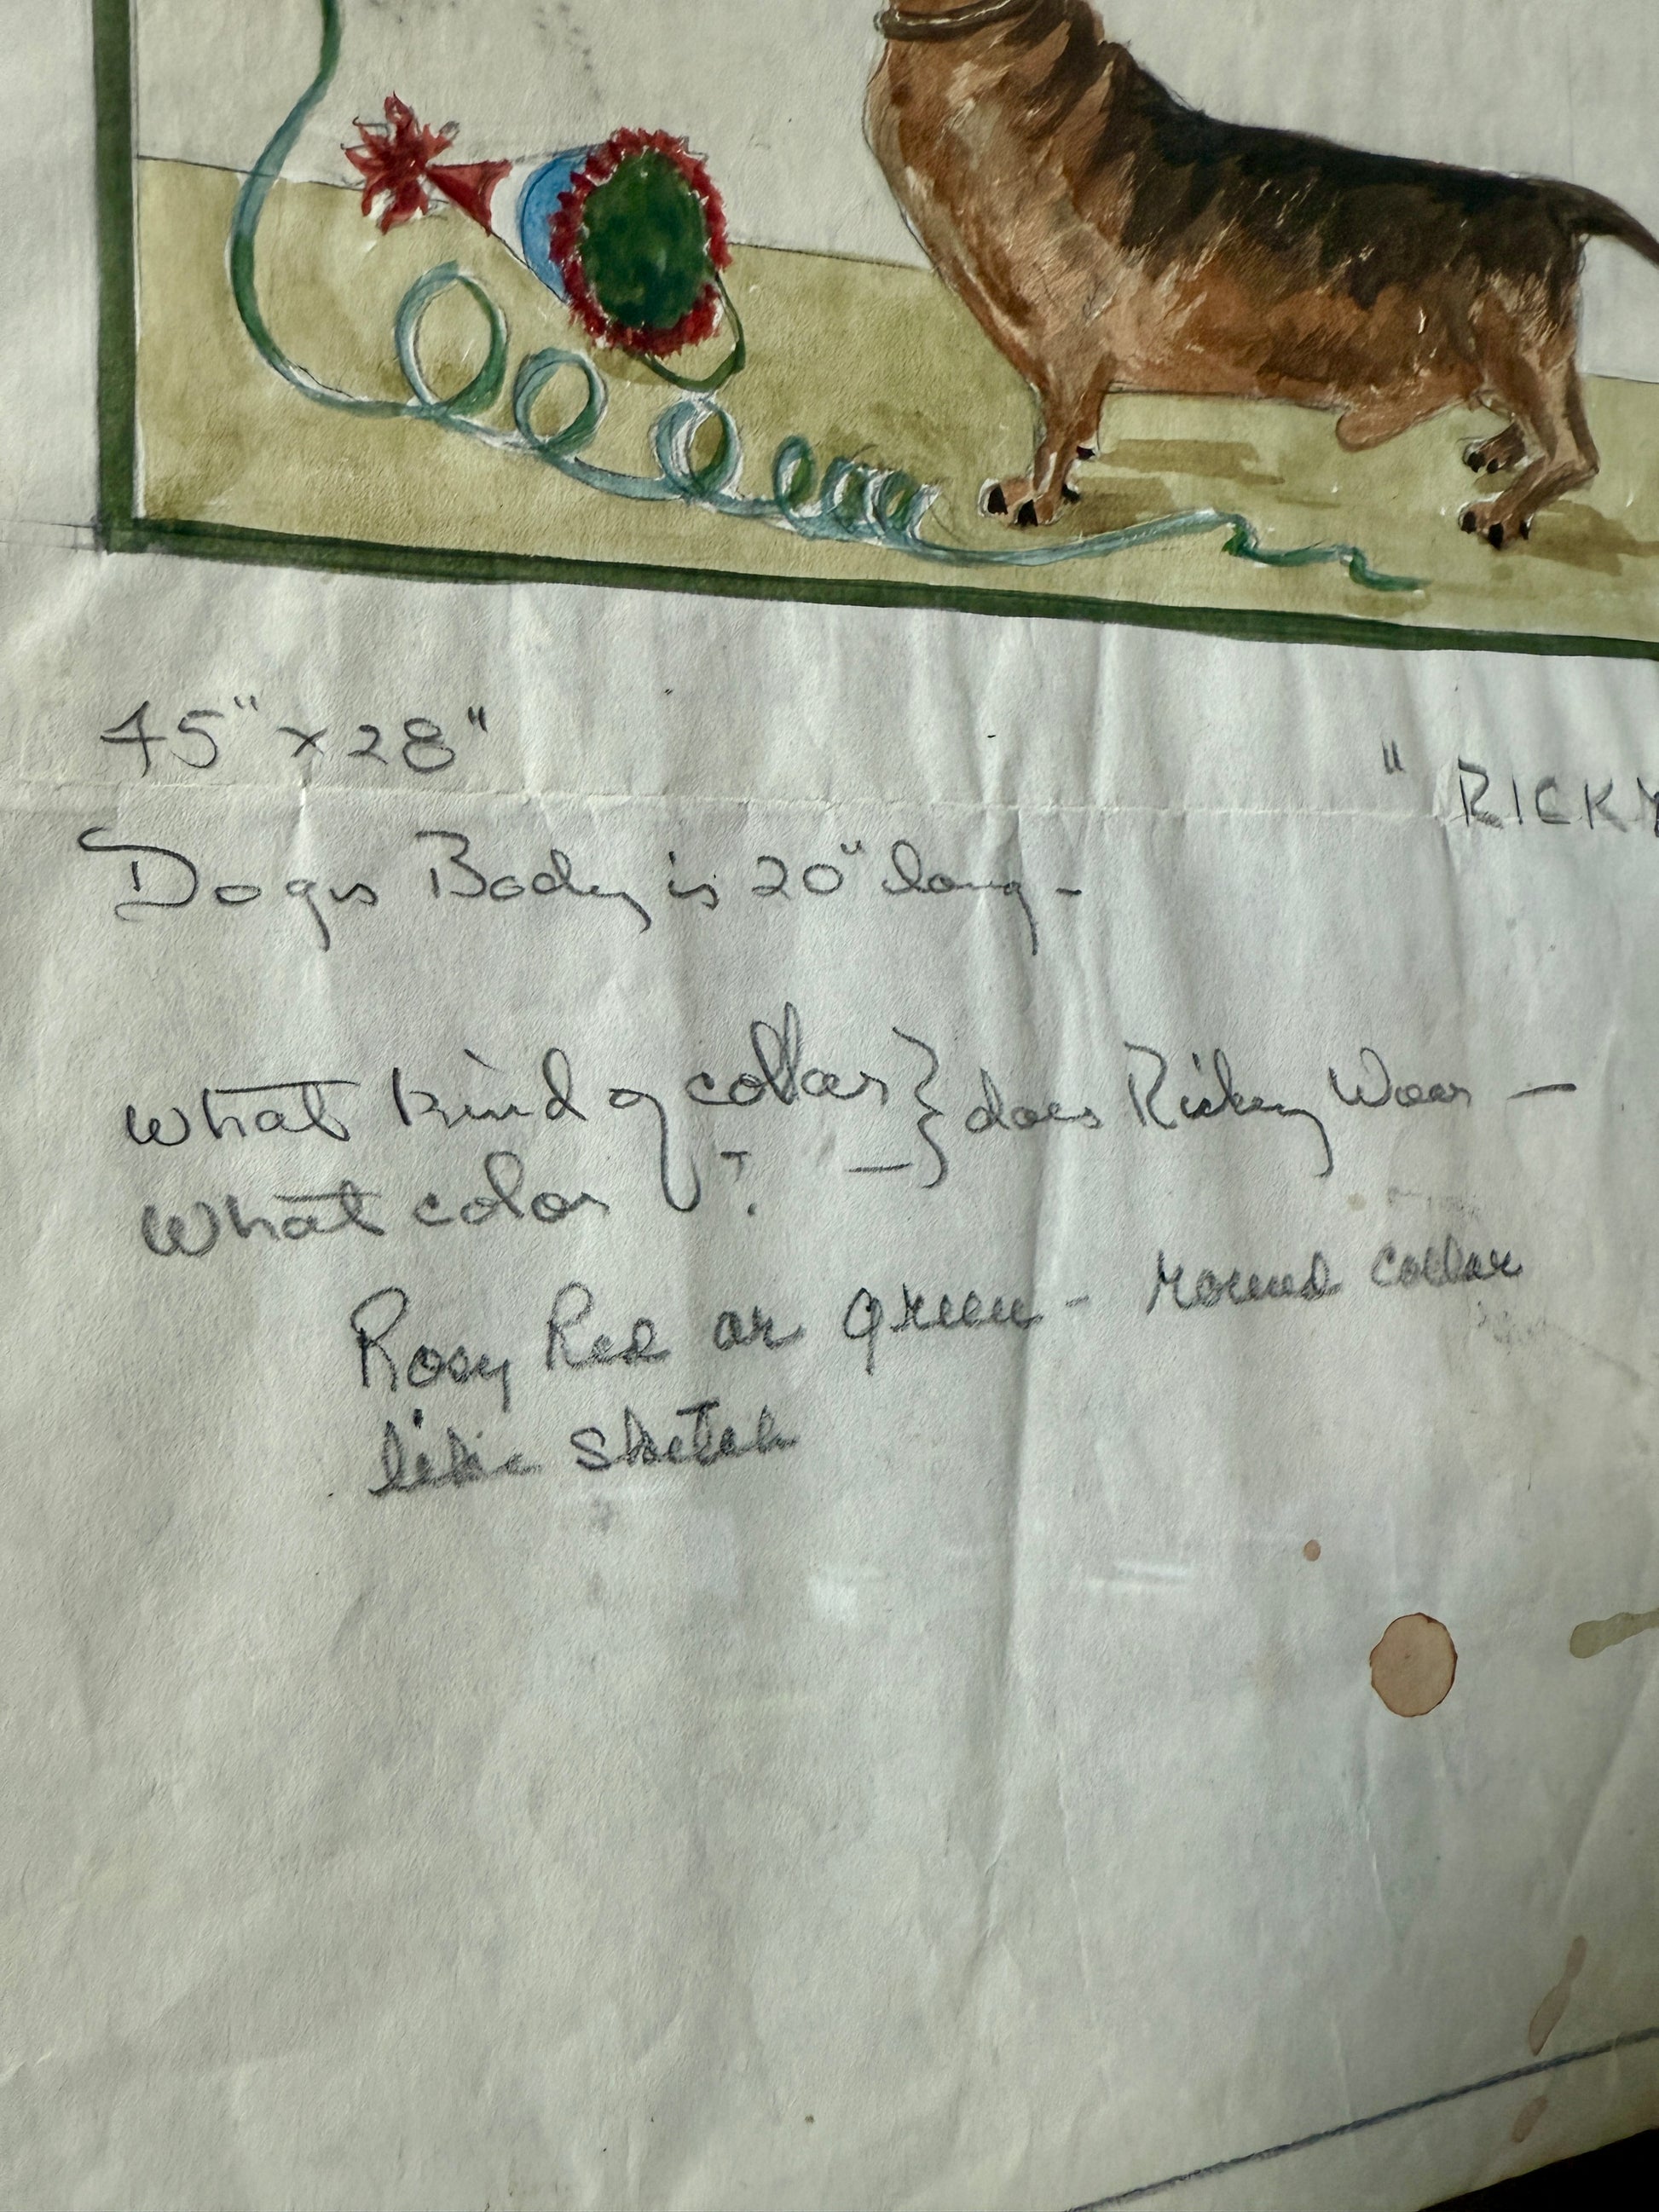 45" x 28"
" RICKY
Dogs Body is 20" long -
What kind of collar } does Ricky Wear -
What color ? -
Rosy Red or green - round collar
like sketch